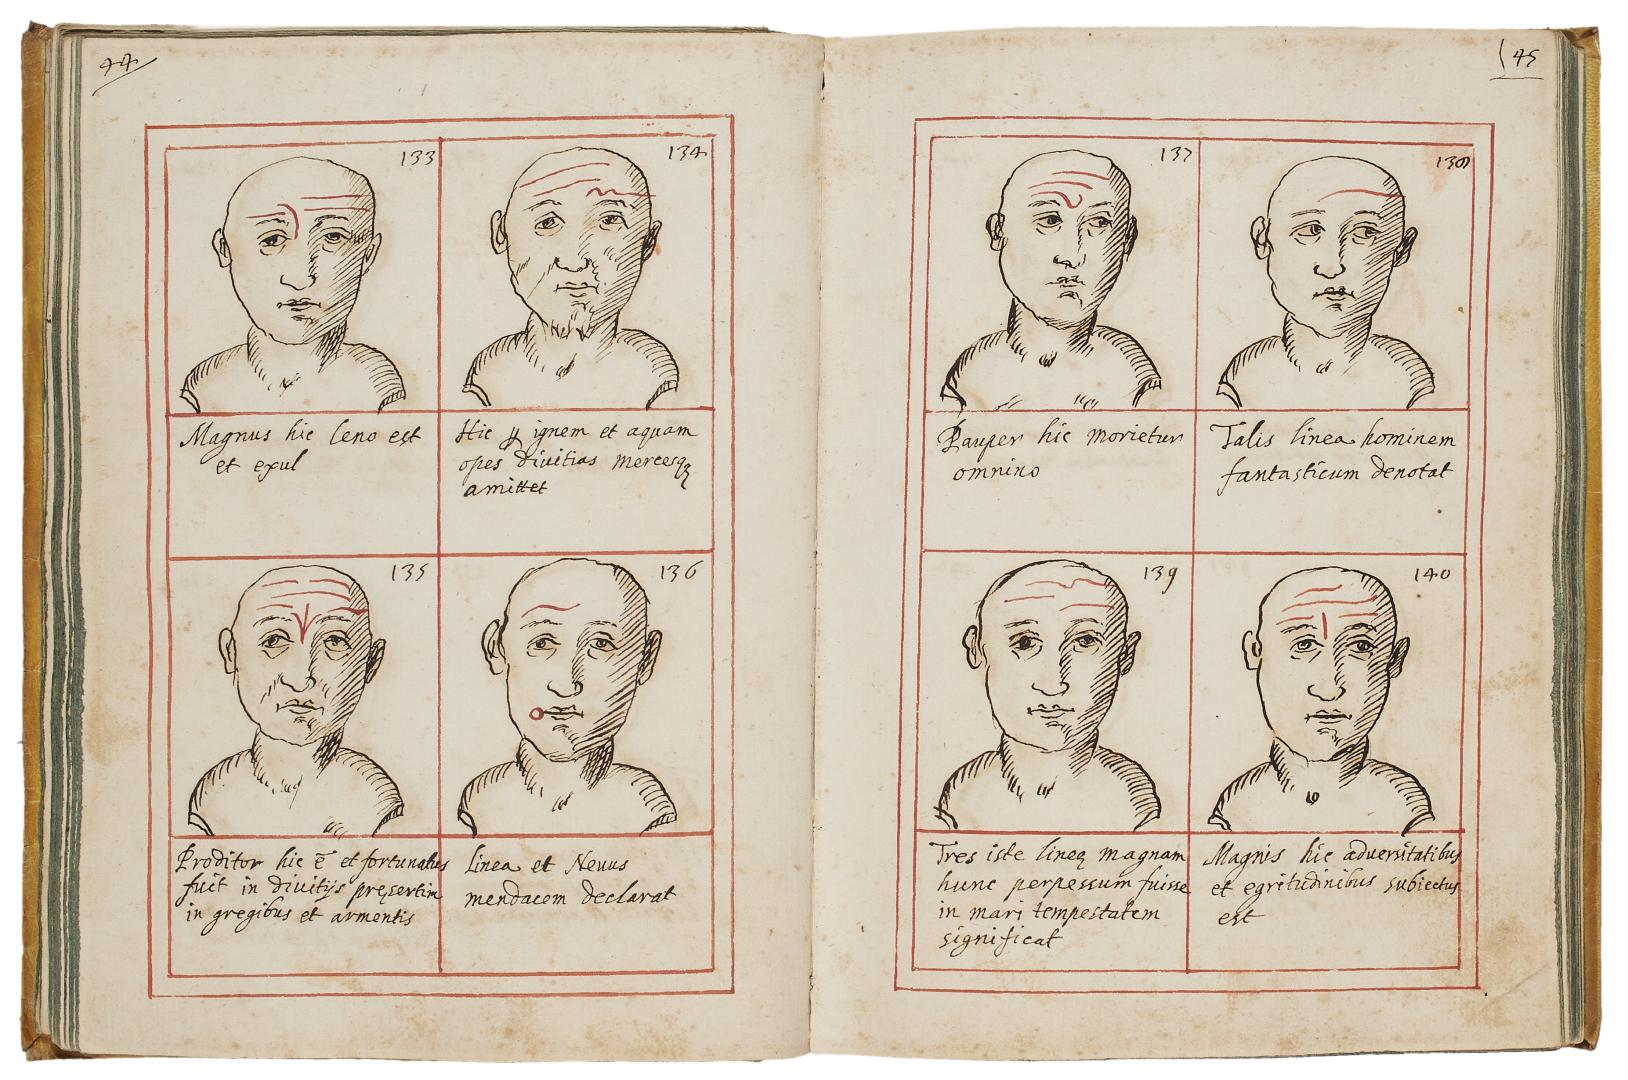 44
133
Magnus hic leno est
et exul
134
Hic ꝑ ignem et aquam
opes divitias mercesqꝫ
amittet
135
Proditor hic ē et fortunatus
fuit in divitijs pręsertim
in gregibus et armentis
136
linea et Nevus
mendacem declarat
45
137
Pauper hic morietur
omnino
138
Talis linea hominem
fantasticum denotat
139
Tres iste lineę magnam
hunc perpessum fuisse
in mari tempestatem
significat
140
Magnis hic adversitatibus
et egritudinibus subiectus
est